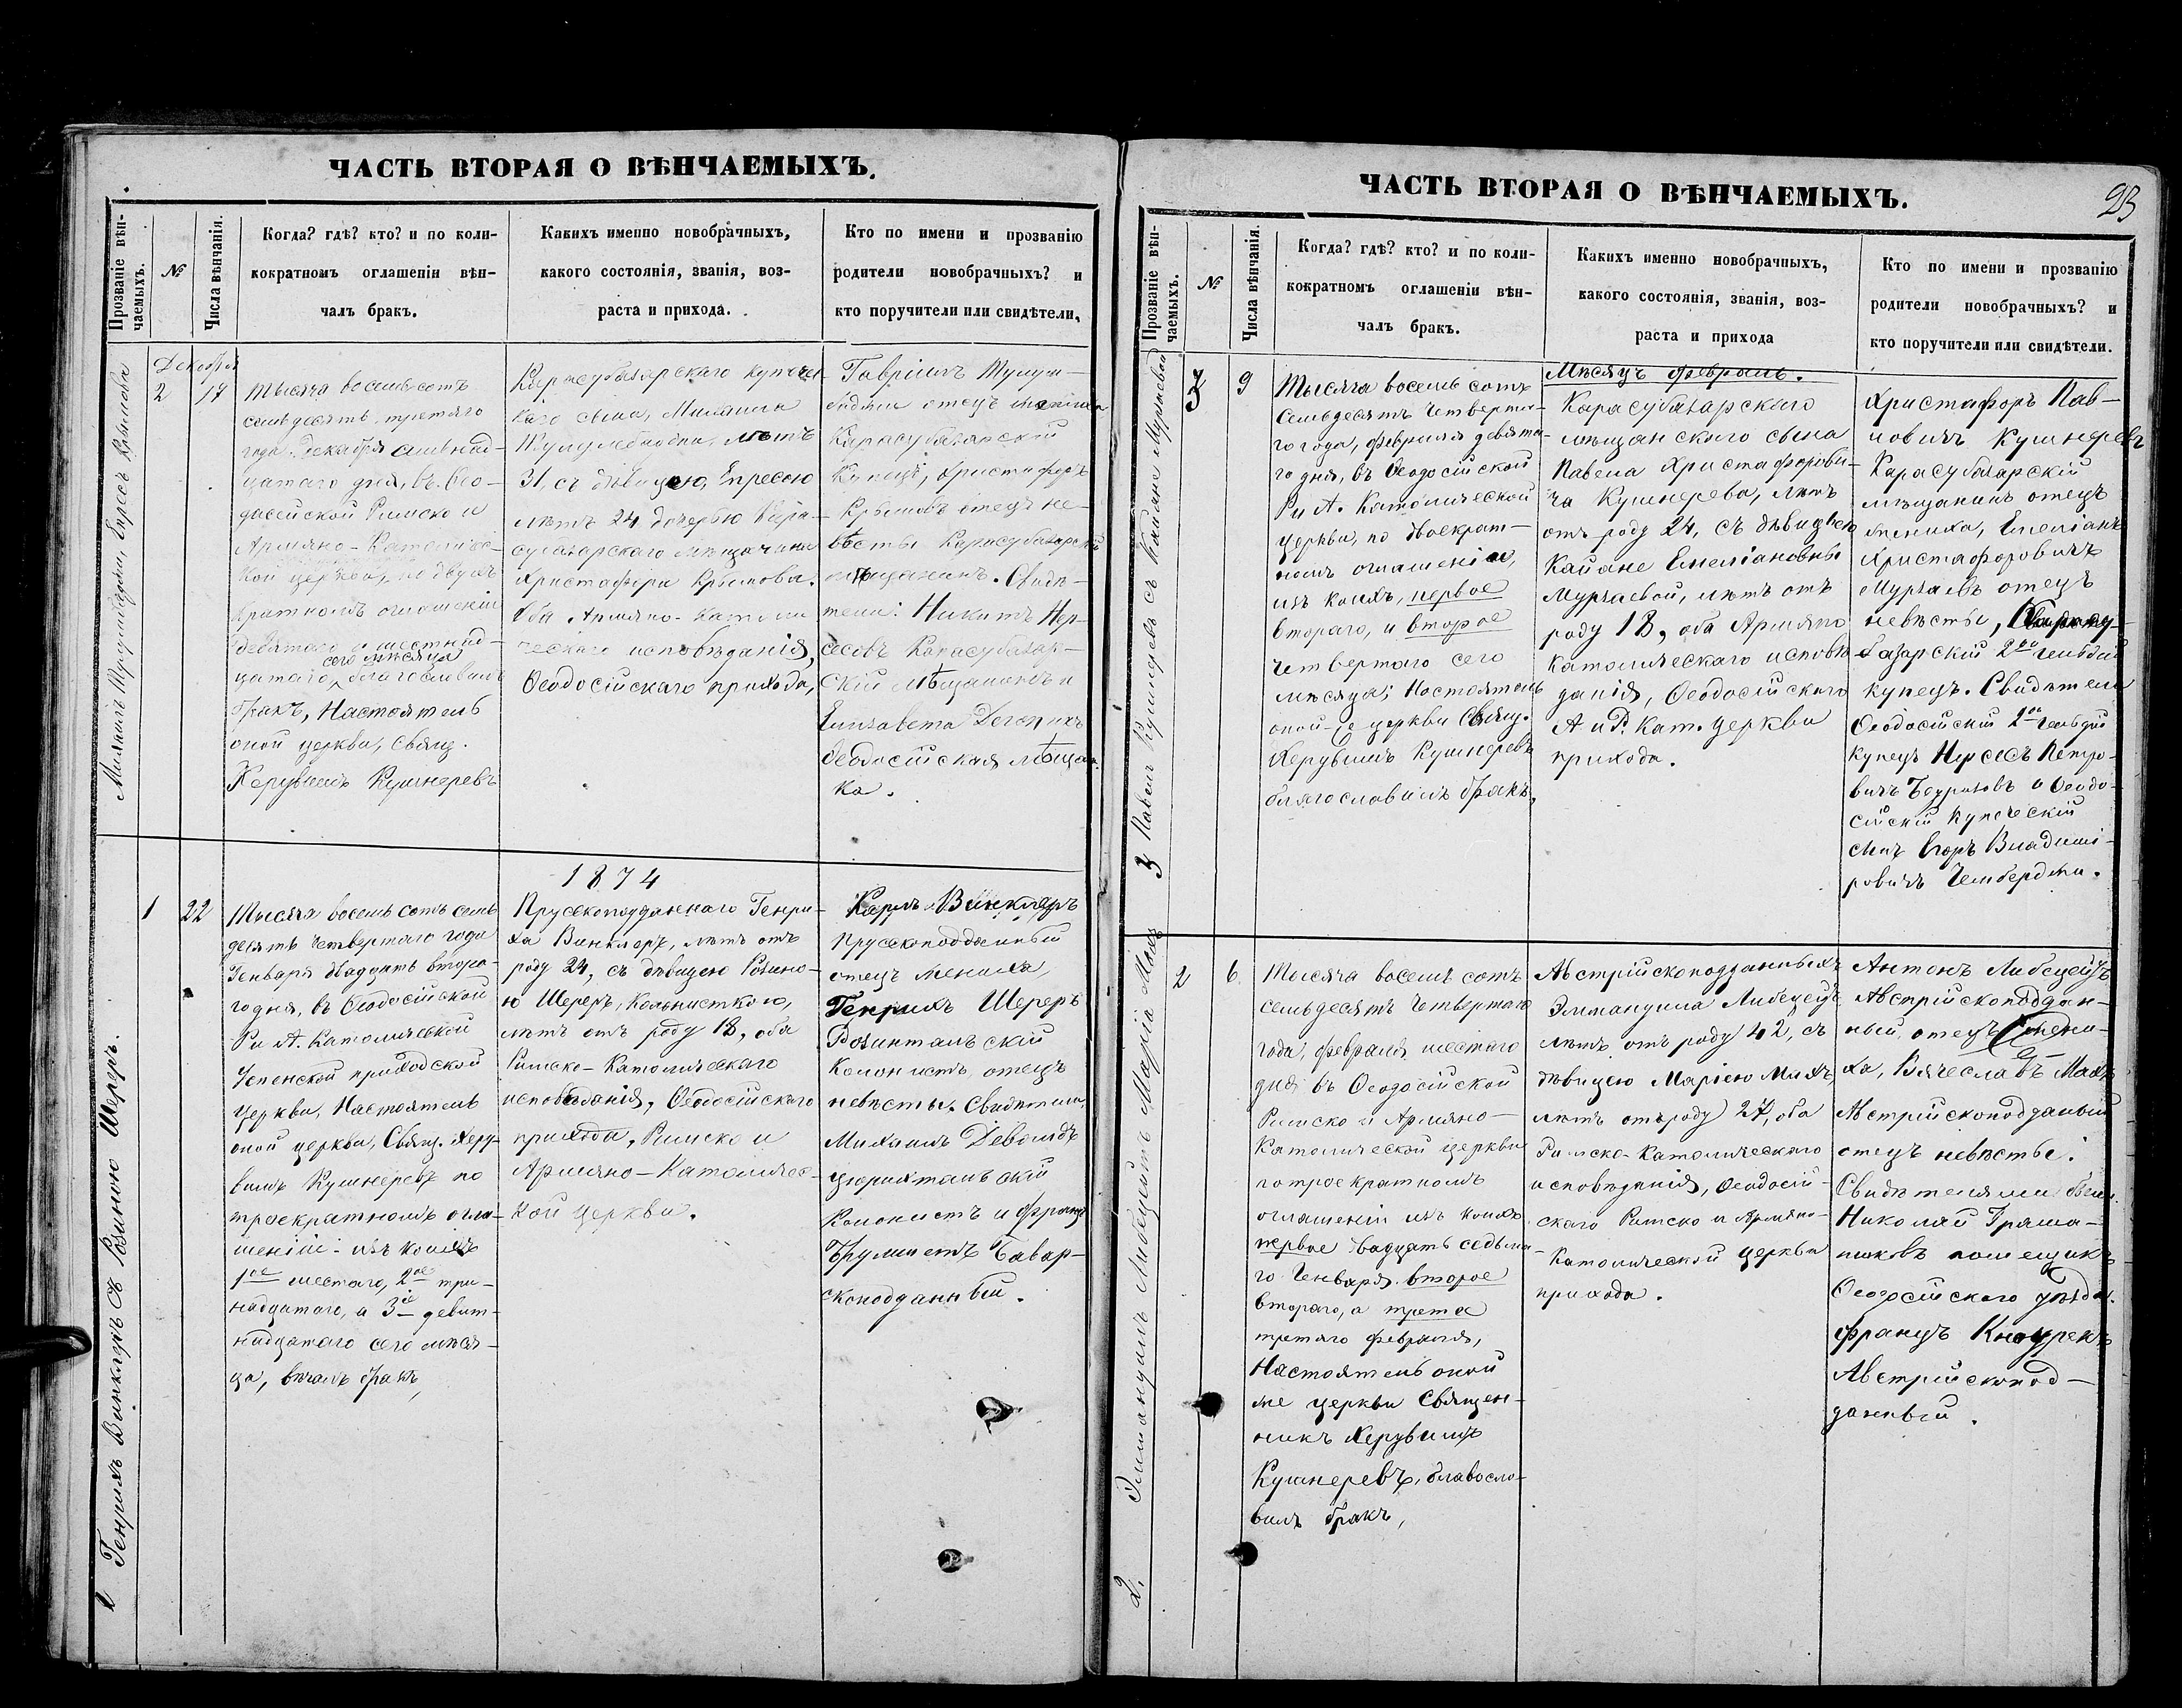 ЧАСТЬ ВТОРАЯ О ВѢНЧАЕМЫХЪ.
Прозваніе вѣн-
чаемыхъ.
№
Числа вѣнчанія.
Когда? гдѣ? кто? и по коли-
кократномъ оглашеніи вѣн-
чалъ бракъ.
Какихъ именно новобрачныхъ,
какого состоянія, званія, воз-
раста и прихода.
Кто по имени и прозванію
родители новобрачныхъ? и
кто поручители или свидѣтели.
Декабря
2
17
Тысяча восемьсотъ
семьдесятъ третяго
года Декабря семнад-
цатаго дня, въ Ѳео-
досійской Римско и
Армяно-Католичес-
кой церкви, по двухъ
кратномъ оглашеніи
девятаго и шестнад-
сего мѣсяца
цатаго, благословилъ
бракъ, Настоятель
оной церкви, Свящ.
Херувимъ Кушнеревъ
Карасубазарскаго купечес-
каго сына,
лѣтъ
31, съ дѣвицею, Епресею
лѣтъ 24 дочерью Кара-
субазарскаго мѣщанина
Христафора Крымова.
Оба Армяно-Католи
ческаго исповѣданія,
Ѳеодосійскаго прихода,
Гавріилъ
отецъ жениха
Карасубазарскій
Купецъ, Христафоръ
Крымовъ отецъ не-
вѣсты Карасубазарскій
мѣщанинъ. Свидѣ-
тели: Никитъ Нер-
сесовъ Карасубазар-
скій Мѣщанинъ и
Елизавета
Ѳеодосійская мѣщан-
ка.
1874
1
22
Тысяча восемь сотъ семь
десятъ четвертаго года
Генваря двадцать втора-
го дня, въ Ѳеодосійской
Р и А. Католической
Успенской приходской
церкви, Настоятель
оной церкви, Свящ. Херу-
вимъ Кушнеревъ по
троекратномъ огла-
шеніи - изъ коихъ
1ое шестаго, 2ое три-
надцатаго, и 3іе девят-
надцатаго сего мѣся-
ца, вѣчалъ бракъ,
Прусскоподданнаго Генри-
ха Винклеръ, лѣтъ отъ
роду 24, съ дѣвицею Розино-
ю Шереръ, Колонисткою,
лѣтъ отъ роду 18, оба
Римско-Католическаго
исповѣданія, Ѳеодосійскаго
прихода, Римско и
Армяно-Католичес-
кой церкви.
Карлъ Винклеръ
Прусскоподданный
отецъ жениха,
Генрихъ Шереръ
Розинтальскій
Колонистъ отецъ
невѣсты. Свидѣтели,
Михаилъ Девольдъ
цюрихтальскій
Колонистъ и Францъ
Брумметъ Бавар-
скоподданный.
1 Генрихъ Винклеръ съ Розиною Шереръ.
ЧАСТЬ ВТОРАЯ О ВѢНЧАЕМЫХЪ.
23
Прозваніе вѣн-
чаемыхъ.
№
Числа вѣнчанія.
Когда? гдѣ? кто? и по коли-
кократномъ оглашеніи вѣн-
чалъ бракъ.
Какихъ именно новобрачныхъ,
какого состоянія, званія, воз-
раста и прихода
Кто по имени и прозванію
родители новобрачныхъ? и
кто поручители или свидѣтели.
Мѣсяцъ Февраль.
3
9
Тысяча восемь сотъ
семьдесятъ четверта-
го года, февраля девята-
го дня, въ Ѳеодосійской
Р и А. Католической
церкви, по двоекрат-
номъ оглашеніи,
изъ коихъ, первое
втораго, и второе
четвертаго сего
мѣсяца; Настоятель
оной церкви Свящ.
Херувимъ Кушнеревъ
благословилъ бракъ,
Карасубазарскаго
мѣщанскаго сына
Павела Христафорови-
ча Кушнерева, лѣтъ
отъ роду 24, съ дѣвицею
Каіане Емеліановны
Мурзаевой, лѣтъ отъ
роду 18, оба Армяно
Католическаго исповѣ
данія, Ѳеодосійскаго
А и Р. Кат. церкви
прихода.
Христафоръ Пав-
ловичъ Кушнеревъ
Карасубазарскій
мѣщанинъ отецъ
жениха, Емеліанъ
Христафоровичъ
Мурзаевъ отецъ
невѣсты, Карасу-
базарскій 2ой гильдіи
купецъ. Свидѣтели
Ѳеодосійскій 2ой гильдіи
купецъ Нерсесъ Петро-
вичъ и Ѳеодо-
сійскій купеческій
сынъ Егоръ Владимі-
ровичъ Чемберджи.
2
6
Тысяча восемь сотъ
семьдесятъ четвертаго
года, февраля шестаго
дня въ Ѳеодосійской
Римско и Армяно-
Католической церкви
по троекратномъ
оглашеніи изъ коихъ
первое двадцать седьма-
го Генваря. второе
втораго, а третіе
третяго февраля,
Настоятель оной
же церкви Священ-
никъ Херувимъ
Кушнеревъ, благосло-
вилъ бракъ,
Австрійскоподданныхъ
Эммануила Либецейтъ
лѣтъ отъ роду 42, съ
дѣвицею Маріею Махъ
лѣтъ отъ роду 27, оба
Римско-Католическаго
исповѣданія, Ѳеодосій-
скаго Римско и Армяно-
Католической церкви
прихода.
Антонъ Либецейтъ
Австрійскоподдан-
ный, отецъ жени-
ха, Вячеславъ Махъ
Австрійскоподданый
отецъ невѣсты.
Свидѣтелями были.
Николай Грама-
тиковъ помещикъ
Ѳеодосійского уѣзда.
Францъ
Австрійскопод-
данный.
3 Павелъ Кушнеревъ съ Каіане Мурзаевой
2. Эммануилъ Либецейтъ Марія Махъ